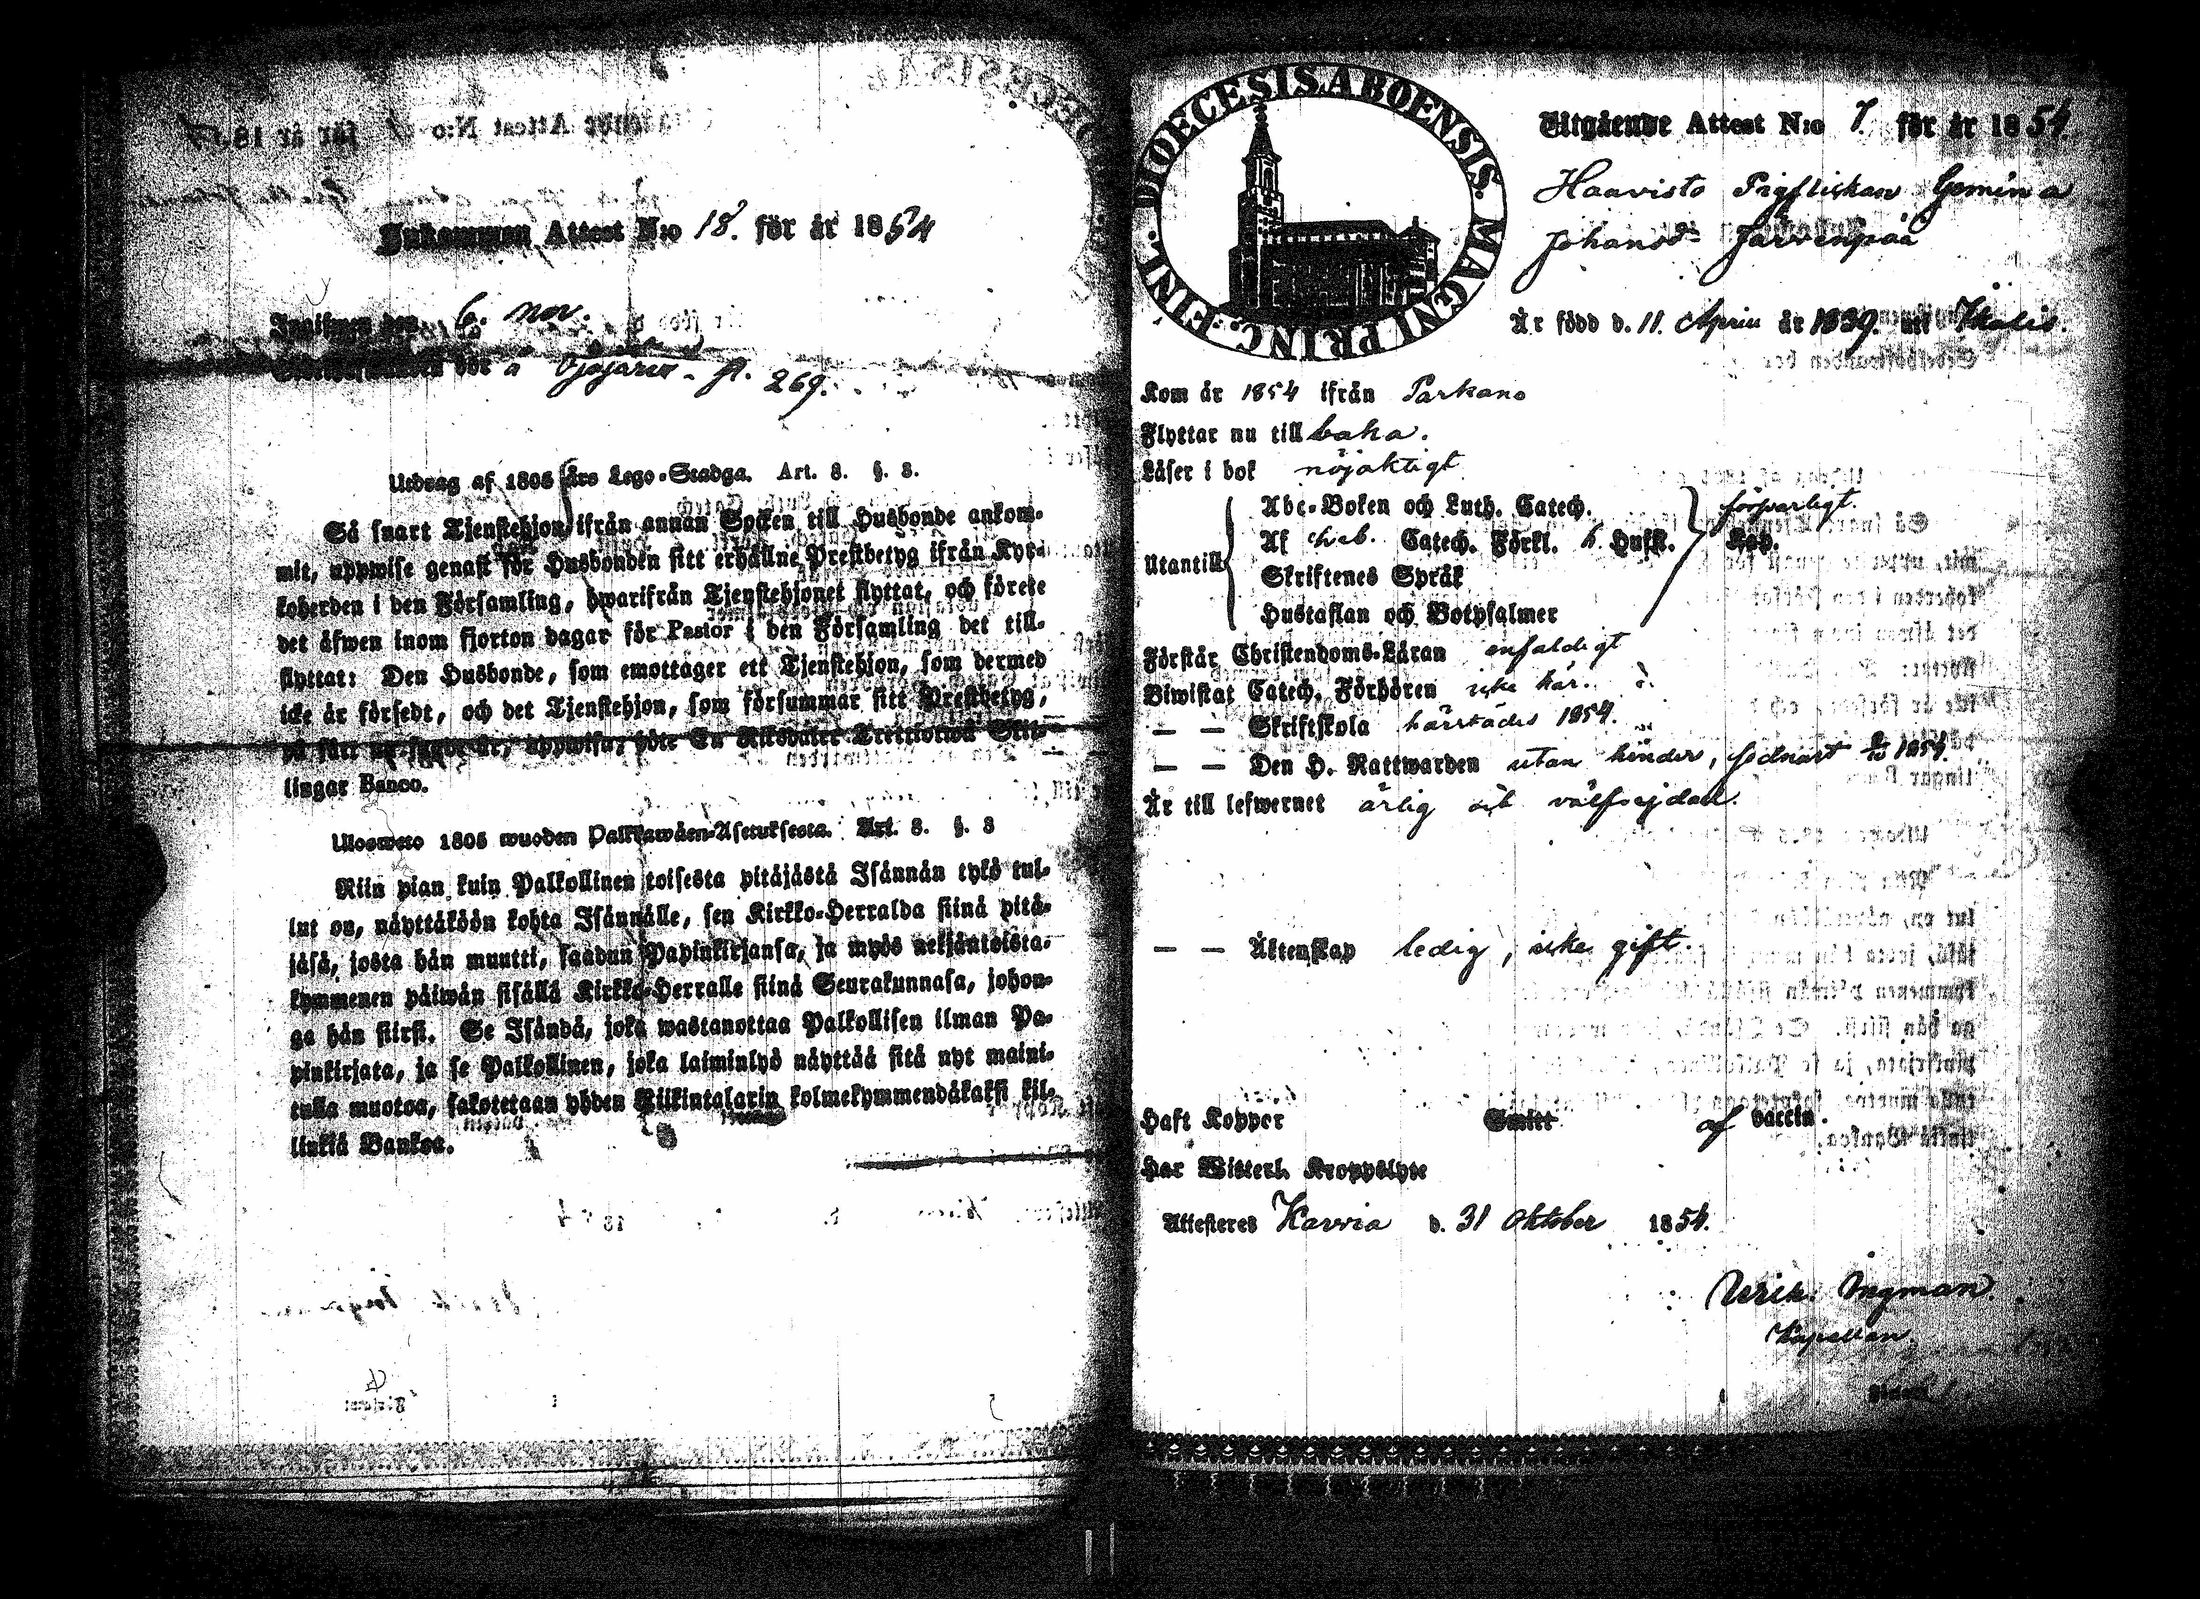 Inkommen Attest N:o 18. för år 1854
Ingifwen den 6. nov.
269.
Utdrag af 1805 års Lego-Stadga. Art. 8. §. 8.
Så snart Tjenstehjon ifrån annan Socken till Husbonde ankom-
mit, uppwise genast för Husbonden sitt erhållne Prestbetyg ifrån Kyr-
koherden i den Församling, hwarifrån Tjenstehjonet flyttat, och förete
det äfwen inom fjorton dagar för Pastor i den Församling det till-
flyttat: Den Husbonde, som emottager ett Tjenstehjon, som dermed
icke är försedt, och det Tjenstehjon, som försummar sitt Prestbetyg,
på sätt nu sagdt är, uppwisa, böte En Riksdaler Trettiotwå Skil-
lingar Banco.
Ulosweto 1805 wuoden Palkkawäen-Asetuksesta. Art. 8. §. 8
Niin pian kuin Palkollinen toisesta pitäjästä Isännän tykö tul-
lut on, näyttäköön kohta Isännälle, sen Kirkko-Herralda siinä pitä-
jäsä, josta hän muutti, saadun Papinkirjansa, ja myös neljäntoista-
kymmenen päiwän sisällä Kirkko-Herralle siinä Seurakunnasa, johon-
ga hän siirsi. Se Isändä, joka wastanottaa Palkollisen ilman Pa-
pinkirjata, ja se Palkollinen, joka laiminlyö näyttää sitä nyt maini-
tulla muotoa, sakotetaan yhden Riikintalarin kolmekymmendäkaksi kil-
linkiä Bankoa.
DIOECESIS ABOENSIS. MAGNI PRINC. FINL.
Utgående Attest N:o 7. för år 1854.
Haavisto Pigflickan Gemina
Johansd:r Järvenpää
Är född d. 11. Aprill år 1839. uti Ikalis.
Kom år 1854 ifrån Parkano
Flyttar nu tillbaka.
Läser i bok nöjaktigt
Utantill
Abc-Boken och Luth. Catech.
Af Catech. Förkl. Hufst. Kap.
försvarligt.
Skriftenes Språk
Hustaflan och Botpsalmer
Förstår Christendoms-Läran enfaldigt
Biwistat Catech. Förhören icke här.
— — Skriftskola härstädes 1854.
— — Den H. Nattwarden utan hinder, sednast 1854.
Är till lefwernet ärlig och välfrejdad.
— — Äktenskap ledig, icke gift.
Haft Koppor Smitt af vaccin.
Har Witterl. Kroppslyte
Attesteres Karvia d. 31 Oktober 1854.
Ulrik Ingman.
Kapellan